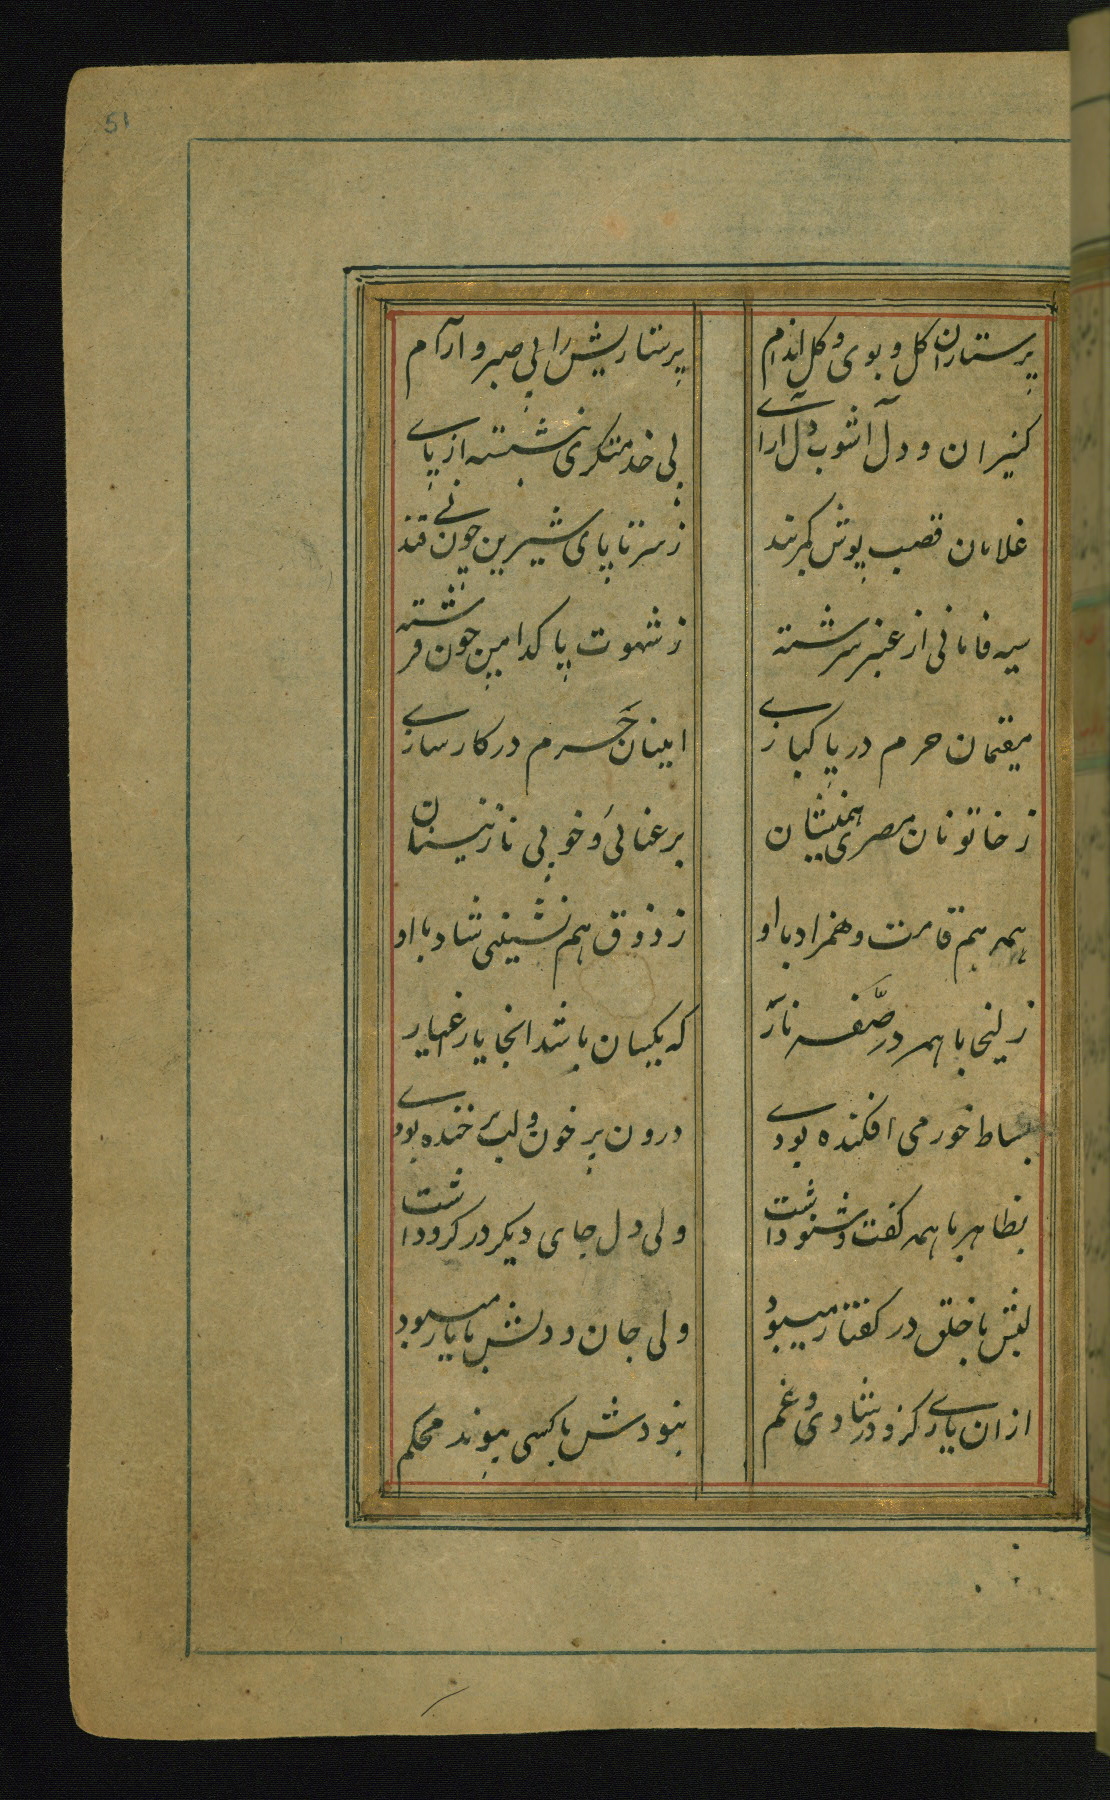 51
پرستاران کل و بوی و کل اندام
پرستاریش را بی صبر و آرام
کنیزان و دل آشوب دل آرای
پی خدمتکری ننشسته از پای
غلامان قصب پوش کمربند
ز سر تا پای شیرین چون نی قند
سیه فامانی از عنبر سرشته
ز شهوت پاکدامن چون فرشته
مقیمان حرم در پاکبازی
امینان حرم در کارسازی
ز خاتونان مصری همنشینان
بر عنائی و خوبی نازنینان
همه هم قامت و همزاد با او
ز ذوق هم نشینی شاد با او
زلیخا با همه در صفه ناز
که یکسان باشد انجا یار
بساط خورمی افکنده بودی
درون پر خون و لب پر خنده بودی
بظاهر با همه کفت و شنو داشت
ولی دل جای دیکر در کرو داشت
لبش با خلق در کفتار میبود
ولی جان و دلش با یار میبود
از ان یاری کزو در شادی و غم
نبودش با کسی پیوند محکم